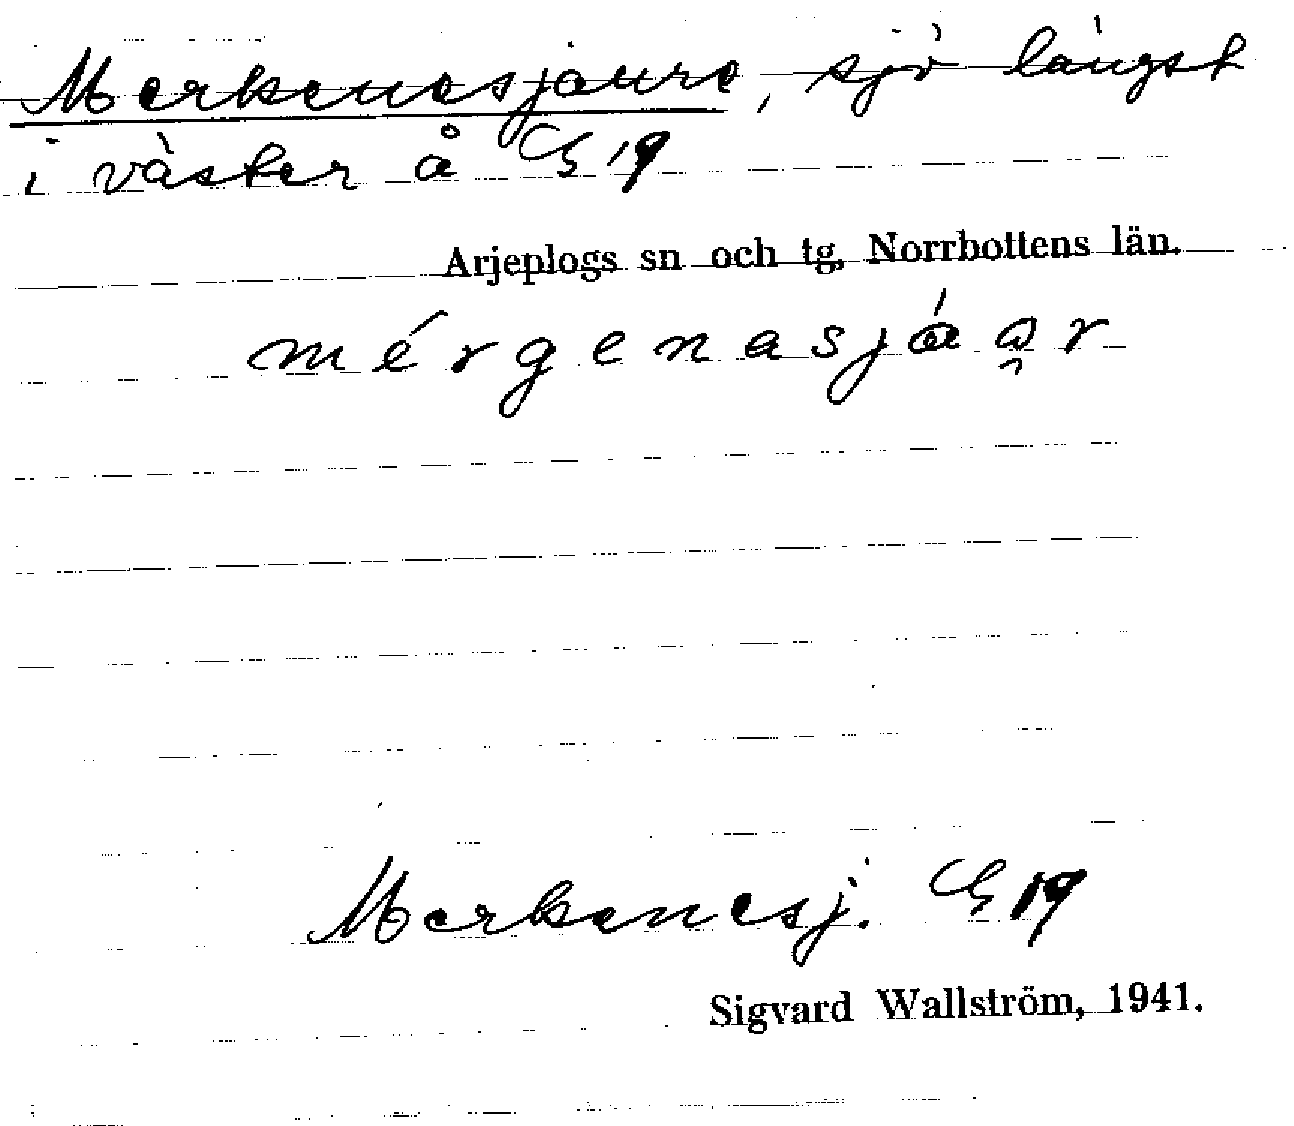 Merkenesjaure, sjö längst
i väster å G 19
Arjeplogs sn och tg, Norrbottens län.
mérgenasjáa̯r
Merkenesj. G 19
Sigvard Wallström, 1941.